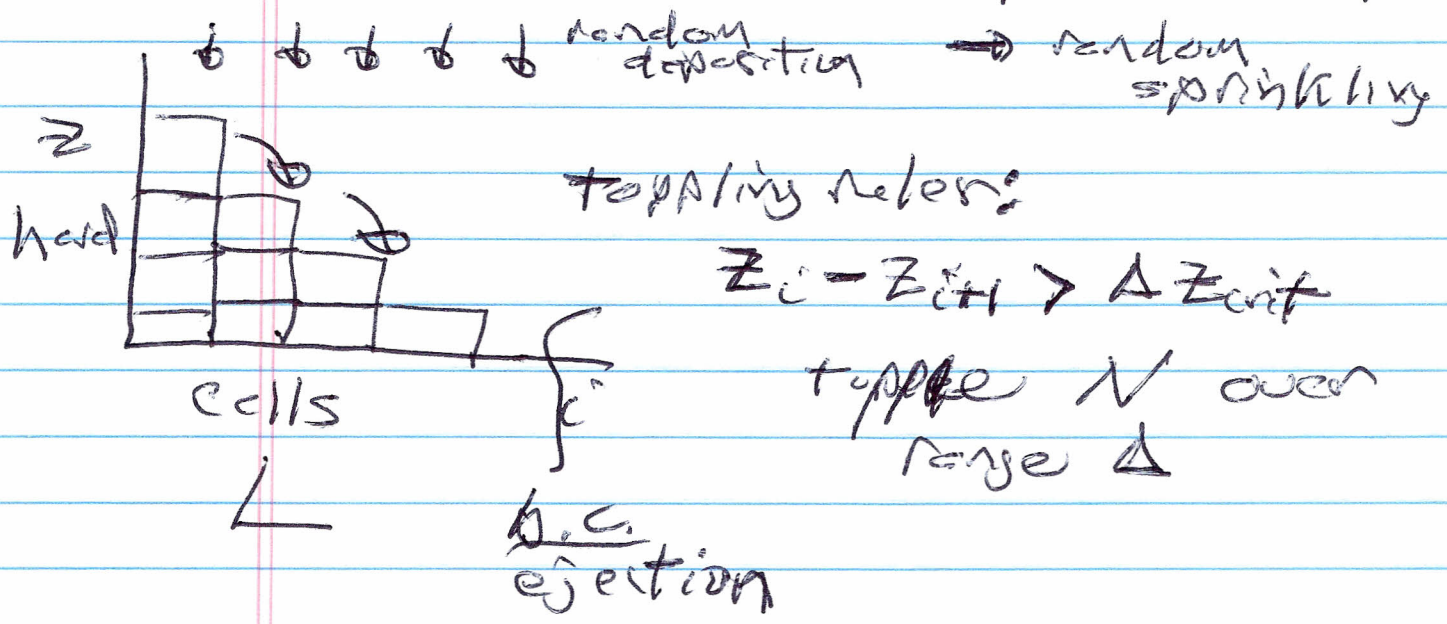 random
deposition
→ random
sprinkling
Z
hard
toppling rules:
Z_i - Z_{i+1} > Δ Z_crit
topple N over
range Δ
cells
i
L
b.c.
ejection